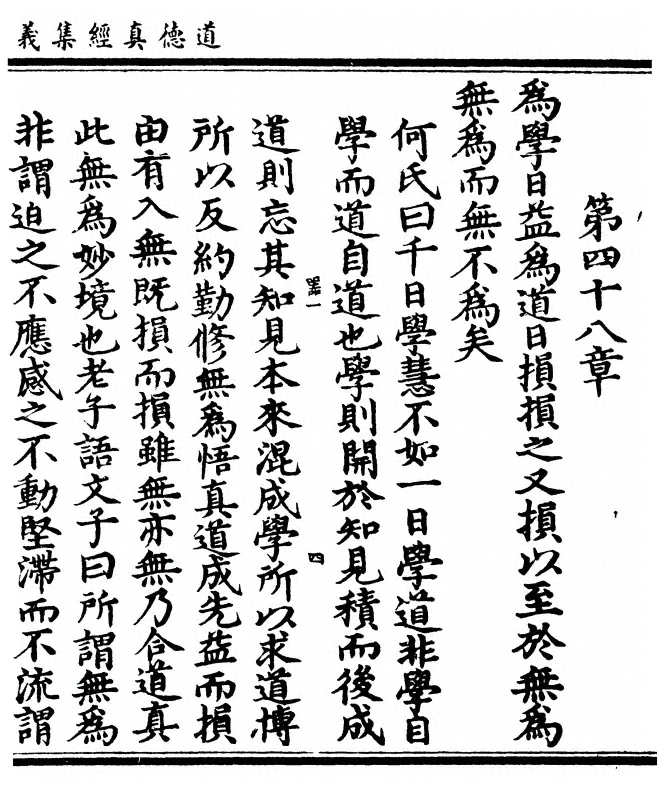 道德真經集義
第四十八章
爲學日益爲道日損損之又損以至於無爲
無爲而無不爲矣
何氏曰千日學慧不如一日學道非學自
學而道自道也學則開於知見積而後成
道則忘其知見本來混成學所以求道博
所以反約勤修無爲悟真道成先益而損
由有入無既損而損雖無亦無乃合道真
此無爲妙境也老子語文子曰所謂無爲
非謂迫之不應感之不動堅滯而不流謂
四